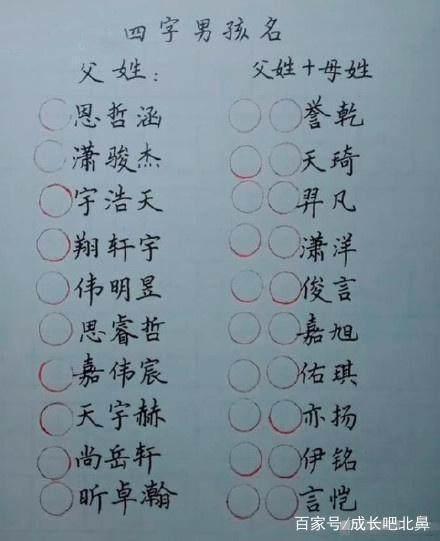 四字男孩名
父姓： 父姓+母姓
恩哲涵 誉乾
潇骏杰 天琦
宇浩天 羿凡
翔轩宇 潇洋
伟明昱 俊言
思睿哲 嘉旭
嘉伟宸 佑琪
天宇赫 亦扬
尚岳轩 伊铭
昕卓瀚 言恺
百家号/成长吧北鼻